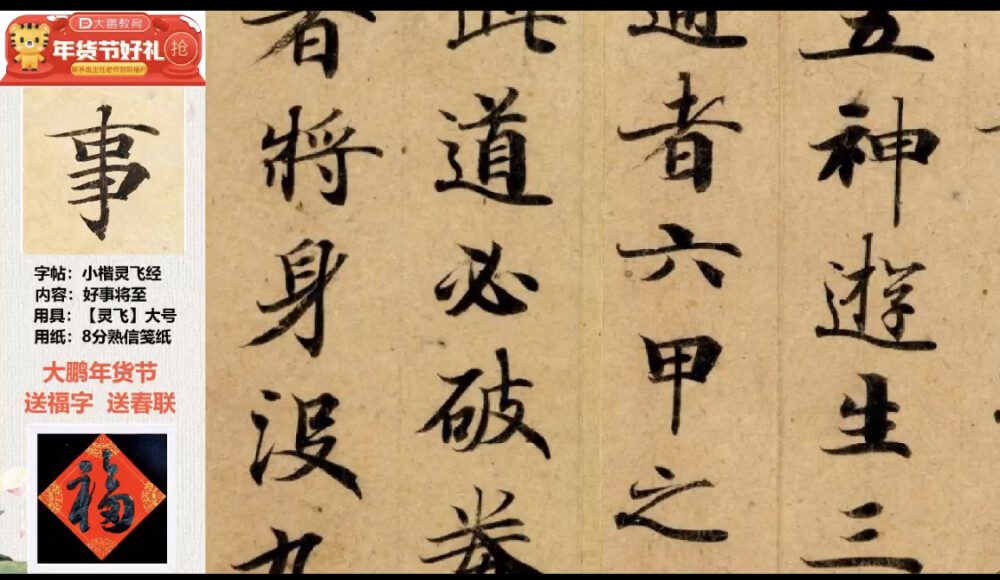 大鹏教育
年货节好礼
抢
事
字帖：小楷灵飞经
内容：好事将至
用具：【灵飞】大号
用纸：8分熟信笺纸
大鹏年货节
送福字 送春联
福
五神遊生三
者六甲之
此道必破
者將身没九